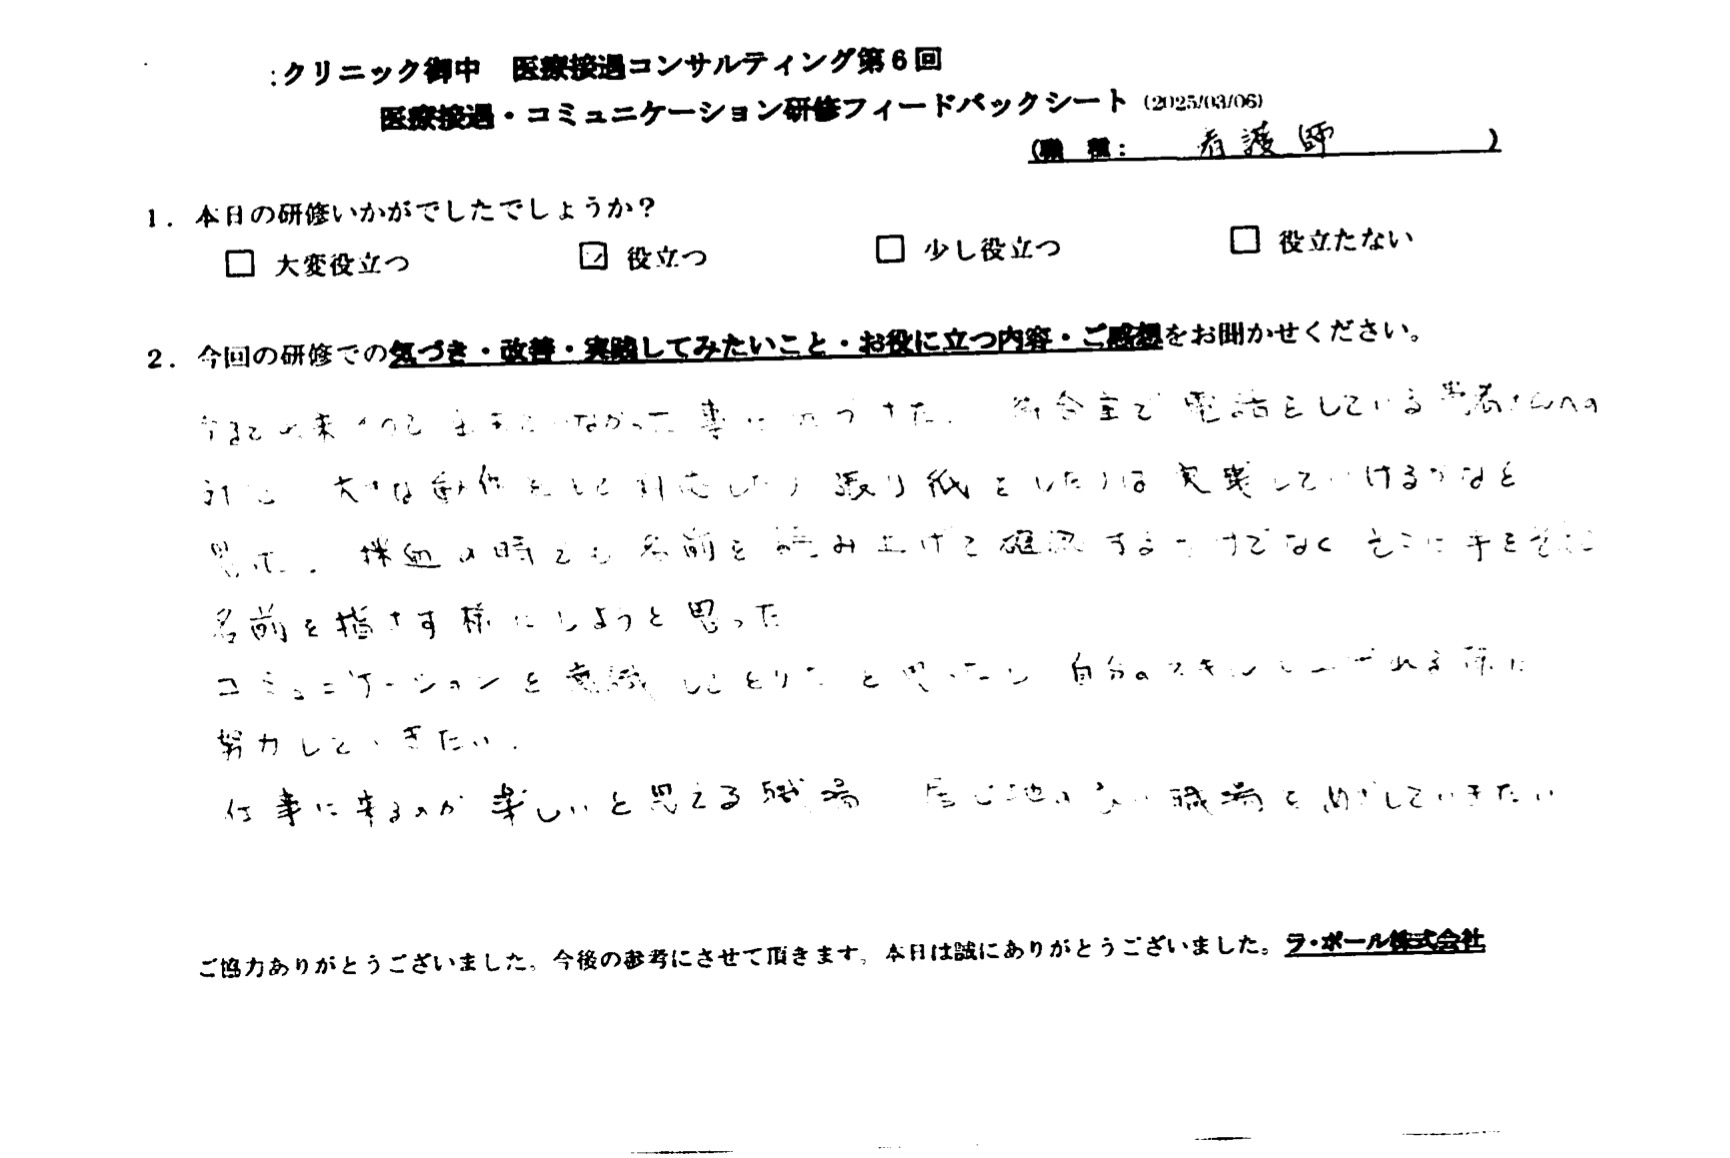 :クリニック御中　医療接遇コンサルティング第6回
医療接遇・コミュニケーション研修フィードバックシート（2025/03/06）
（職　種：　看護師　）
1．本日の研修いかがでしたでしょうか？
□ 大変役立つ　☑ 役立つ　□ 少し役立つ　□ 役立たない
2．今回の研修での気づき・改善・実践してみたいこと・お役に立つ内容・ご感想をお聞かせください。
なかった事に気づきた。待合室で電話をしている患者さんへの
大きな動作をして対応したり張り紙をしたりは実践していけるかなと
思った。採血の時でも名前を読み上げて確認するだけでなくそこに手をそえ
名前を指さす様にしようと思った
コミュニケーションを意識してとりたいと思ったし自分のスキルも上げれる様に
努力していきたい。
仕事に来るのが楽しいと思える職場　居心地の良い職場をめざしていきたい
ご協力ありがとうございました。今後の参考にさせて頂きます。本日は誠にありがとうございました。ラ・ポール株式会社